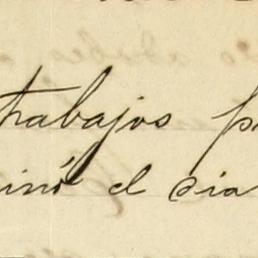 trabajos p
inó el dia